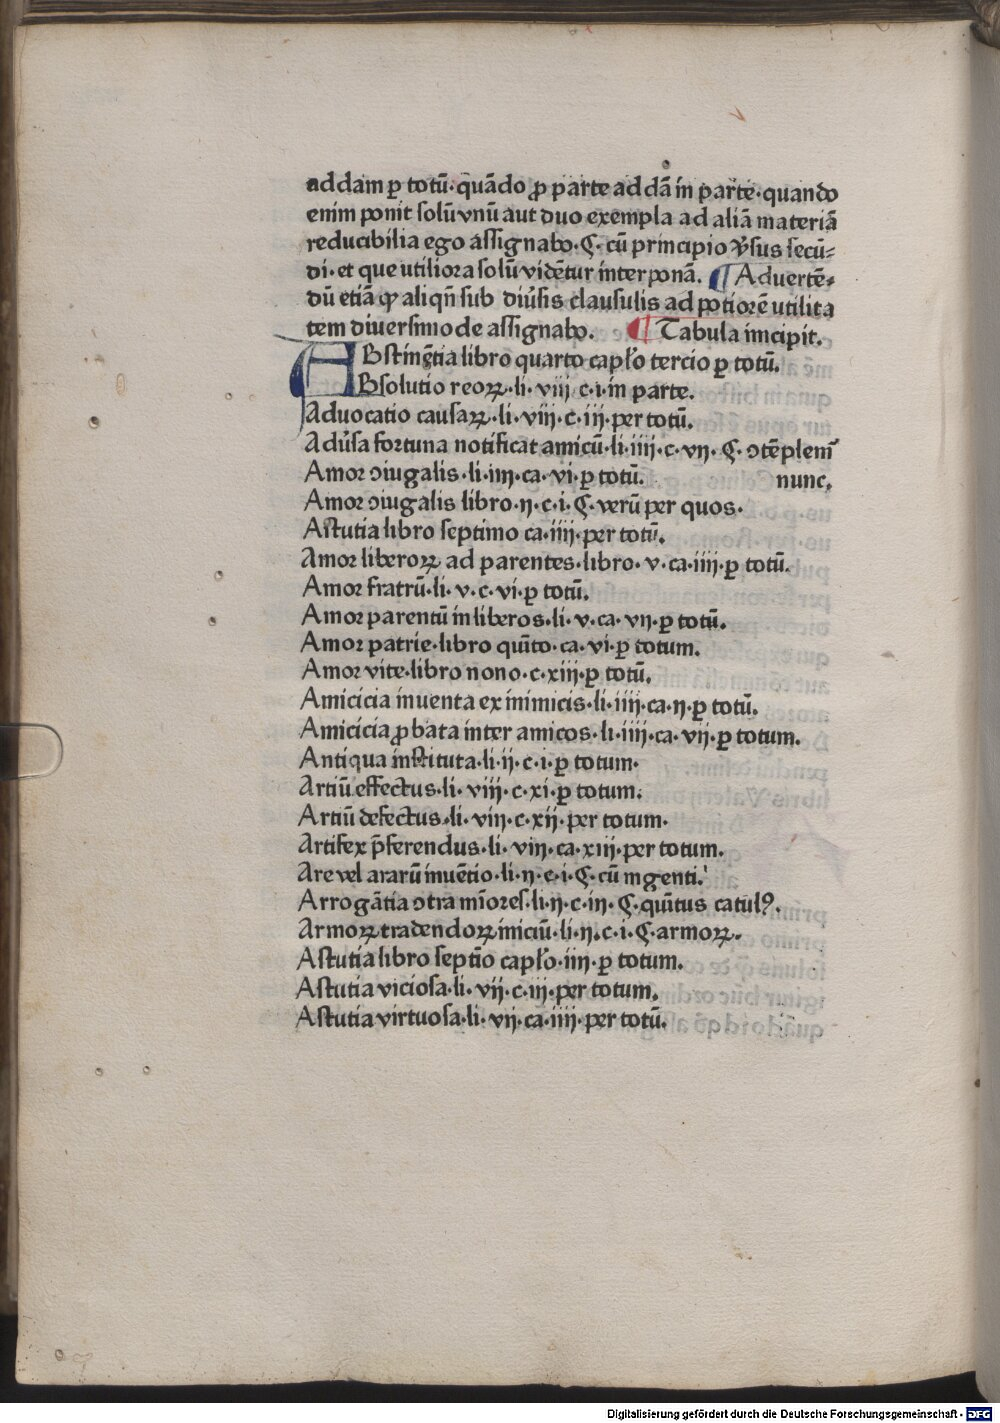 addam ꝑ totū· quādo ꝓ parte addā in parte· quando
enim ponit solū vnū aut duo exempla ad aliā materiā
reducibilia ego assignabo· ꝯ· cū principio v̓sus secū-
di· et que utiliora solū vidētur interponā. ¶ Aduertē-
dū etiā ꝙ aliqn̄ sub diu̓sis clausulis ad potiorē utilita
tem diuersimode assignabo. ¶ Tabula incipit.
ABstinētia libro quarto capl̓o tercio ꝑ totū.
ABsolutio reoꝝ· li· viij c· i· in parte.
Aduocatio causaꝝ· li· viij· c· iij· per totū.
Adu̓sa fortuna notificat amicū· li· iiij· c· vij· Ҁ· ↄtēplem̄
Amor ↄiugalis· li· iiij· ca· vi· ꝑ totū. nunc.
Amor ↄiugalis libro· ij· c· i· Ҁ· verū per quos·
Astutia libro septimo ca· iiij· per totū.
Amor liberoꝝ ad parentes· libro· v· ca· iiij· ꝑ totū.
Amor fratrū· li· v· c· vi· ꝑ totū.
Amor parentū in liberos· li· v· ca· vij· ꝑ totū.
Amor patrie· libro quīto· ca· vi· ꝑ totum.
Amor vite· libro nono· c· xiij· ꝑ totū.
Amicicia inuenta ex inimicis· li· iiij· ca· ij· ꝑ totū.
Amicicia ꝓbata inter amicos· li· iiij· ca· vij· ꝑ totum.
Antiqua instituta· li· ij· c· i· ꝑ totum·
Artiū effectus· li· viij· c· xi· ꝑ totum.
Artiū defectus· li· viij· c· xij· per totum·
Artifex p̄ferendus· li· viij· ca· xiij· per totum.
Are vel ararū inuētio· li· ij· c· i· Ҁ· cū ingenti.
Arrogātia ↄtra mīores· li· ij· c· iij· Ҁ· quītus catulꝰ.
Armoꝝ tradendoꝝ iniciū· li· ij. c· i· Ҁ· armoꝝ.
Astutia libro septīo capl̓o· iiij· ꝑ totum.
Astutia viciosa· li· vij· c· iij· per totum.
Astutia virtuosa· li· vij· ca· iiij· per totū.
Digitalisierung gefördert durch die Deutsche Forschungsgemeinschaft - DFG